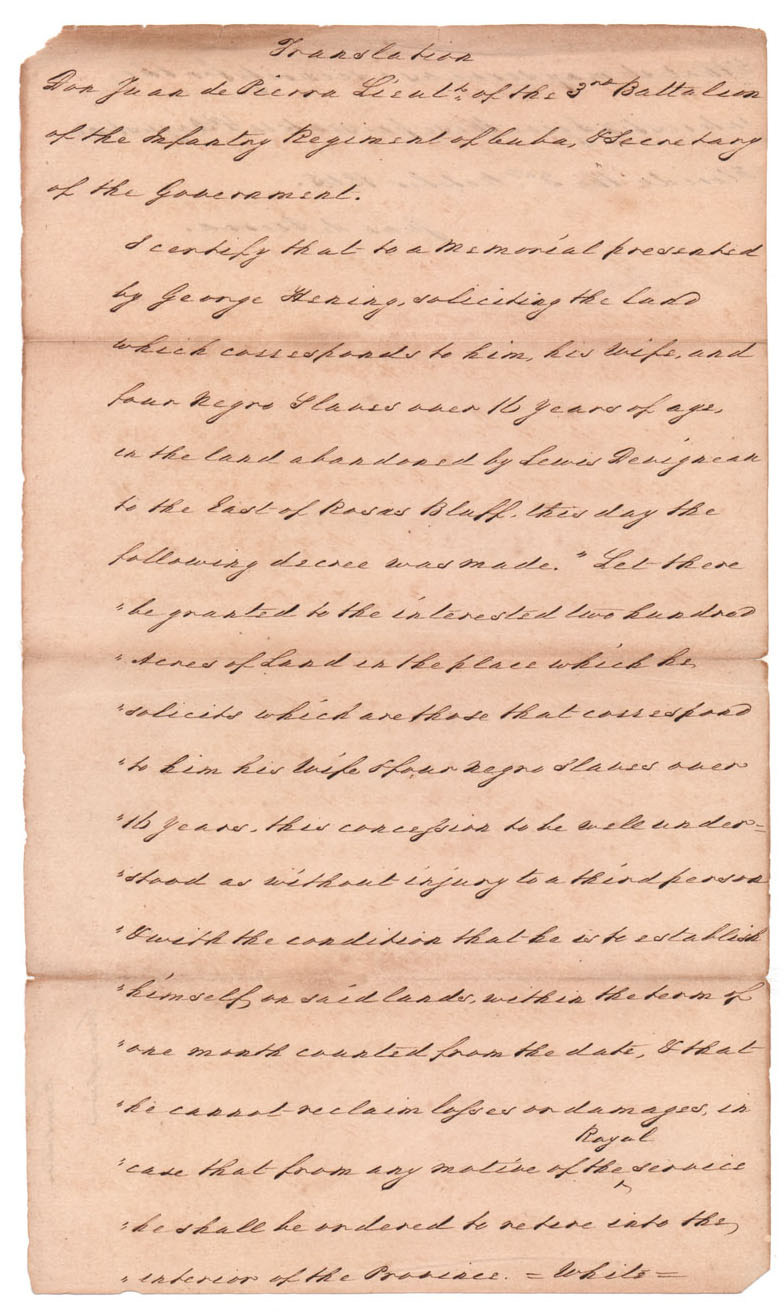 Translation
Don Juan de Pierra Lieut. of the 3rd Battalion
of the Infantry Regiment of Cuba, & Secretary
of the Government.
I certify that to a Memorial presented
by George Hening, soliciting the land
which corresponds to him, his Wife, and
four Negro Slaves over 16 years of age,
in the land abandoned by Lewis Devignean
to the East of Rosas Bluff, this day the
following decree was made. "Let there
"be granted to the interested two hundred
"Acres of Land in the place which he
"solicits which are those that correspond
"to him his Wife & four Negro Slaves over
"16 years, this concession to be well under=
"stood as without injury to a third person
"& with the condition that he is to establish
"himself on said lands, within the term of
"one month counted from the date, & that
"he cannot reclaim losses or damages, in
"case that from any motive of the Royal service
"he shall be ordered to retire into the
"interior of the Province. = White =